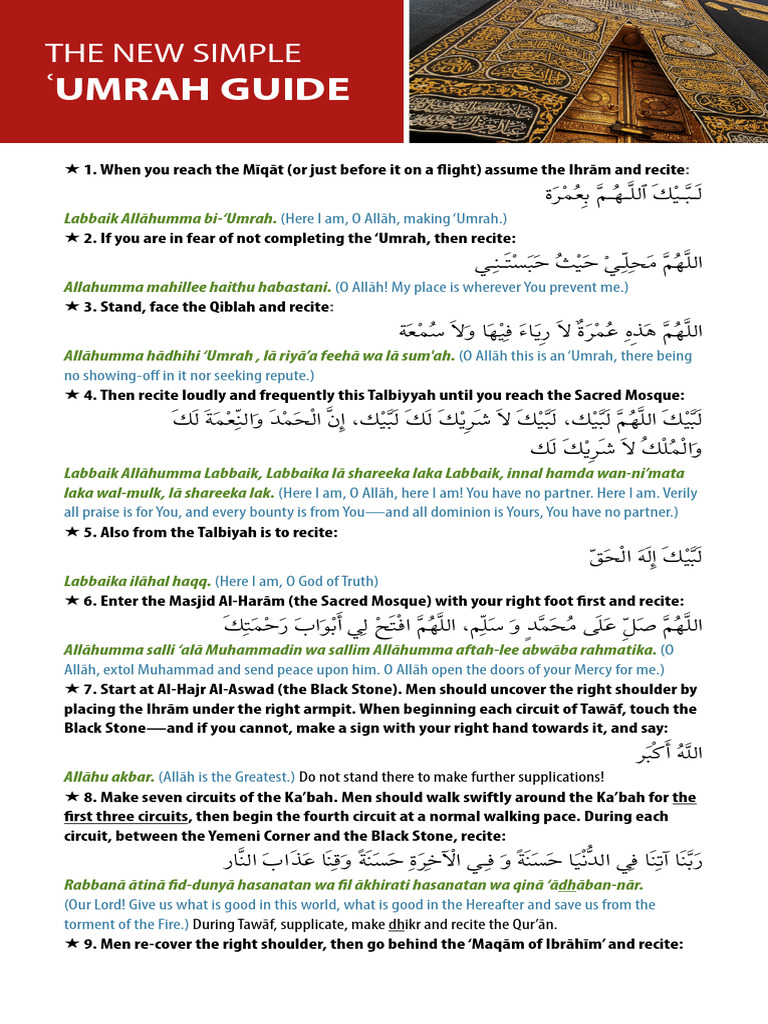 THE NEW SIMPLE
ʿUMRAH GUIDE
★ 1. When you reach the Mīqāt (or just before it on a flight) assume the Ihrām and recite:
لَبَّيْكَ اللَّهُمَّ بِعُمْرَة
Labbaik Allāhumma bi-‘Umrah. (Here I am, O Allāh, making ‘Umrah.)
★ 2. If you are in fear of not completing the ‘Umrah, then recite:
اللَّهُمَّ مَحِلِّيْ حَيْثُ حَبَسْتَنِي
Allahumma mahillee haithu habastani. (O Allāh! My place is wherever You prevent me.)
★ 3. Stand, face the Qiblah and recite:
اللَّهُمَّ هَذِهِ عُمْرَةٌ لاَ رِيَاءَ فِيْهَا وَلاَ سُمْعَة
Allāhumma hādhihi ‘Umrah , lā riyā’a feehā wa lā sum'ah. (O Allāh this is an ‘Umrah, there being
no showing-off in it nor seeking repute.)
★ 4. Then recite loudly and frequently this Talbiyyah until you reach the Sacred Mosque:
لَبَّيْكَ اللَّهُمَّ لَبَّيْك، لَبَّيْكَ لاَ شَرِيْكَ لَكَ لَبَّيْك، إِنَّ الْحَمْدَ وَالنِّعْمَةَ لَكَ
وَالْمُلْكُ لاَ شَرِيْكَ لَك
Labbaik Allāhumma Labbaik, Labbaika lā shareeka laka Labbaik, innal hamda wan-ni’mata
laka wal-mulk, lā shareeka lak. (Here I am, O Allāh, here I am! You have no partner. Here I am. Verily
all praise is for You, and every bounty is from You—and all dominion is Yours, You have no partner.)
★ 5. Also from the Talbiyah is to recite:
لَبَّيْكَ إِلَهَ الْحَقّ
Labbaika ilāhal haqq. (Here I am, O God of Truth)
★ 6. Enter the Masjid Al-Harām (the Sacred Mosque) with your right foot first and recite:
اللَّهُمَّ صَلِّ عَلَى مُحَمَّدٍ وَ سَلِّم، اللَّهُمَّ افْتَحْ لِي أَبْوَابَ رَحْمَتِكَ
Allāhumma salli ‘alā Muhammadin wa sallim Allāhumma aftah-lee abwāba rahmatika. (O
Allāh, extol Muhammad and send peace upon him. O Allāh open the doors of your Mercy for me.)
★ 7. Start at Al-Hajr Al-Aswad (the Black Stone). Men should uncover the right shoulder by
placing the Ihrām under the right armpit. When beginning each circuit of Tawāf, touch the
Black Stone—and if you cannot, make a sign with your right hand towards it, and say:
اللَّهُ أَكْبَر
Allāhu akbar. (Allāh is the Greatest.) Do not stand there to make further supplications!
★ 8. Make seven circuits of the Ka’bah. Men should walk swiftly around the Ka’bah for the
first three circuits, then begin the fourth circuit at a normal walking pace. During each
circuit, between the Yemeni Corner and the Black Stone, recite:
رَبَّنَا آتِنَا فِي الدُّنْيَا حَسَنَةً وَ فِي الْآخِرَةِ حَسَنَةً وَقِنَا عَذَابَ النَّار
Rabbanā ātinā fid-dunyā hasanatan wa fil ākhirati hasanatan wa qinā ‘ādhāban-nār.
(Our Lord! Give us what is good in this world, what is good in the Hereafter and save us from the
torment of the Fire.) During Tawāf, supplicate, make dhikr and recite the Qur’ān.
★ 9. Men re-cover the right shoulder, then go behind the ‘Maqām of Ibrāhīm’ and recite: